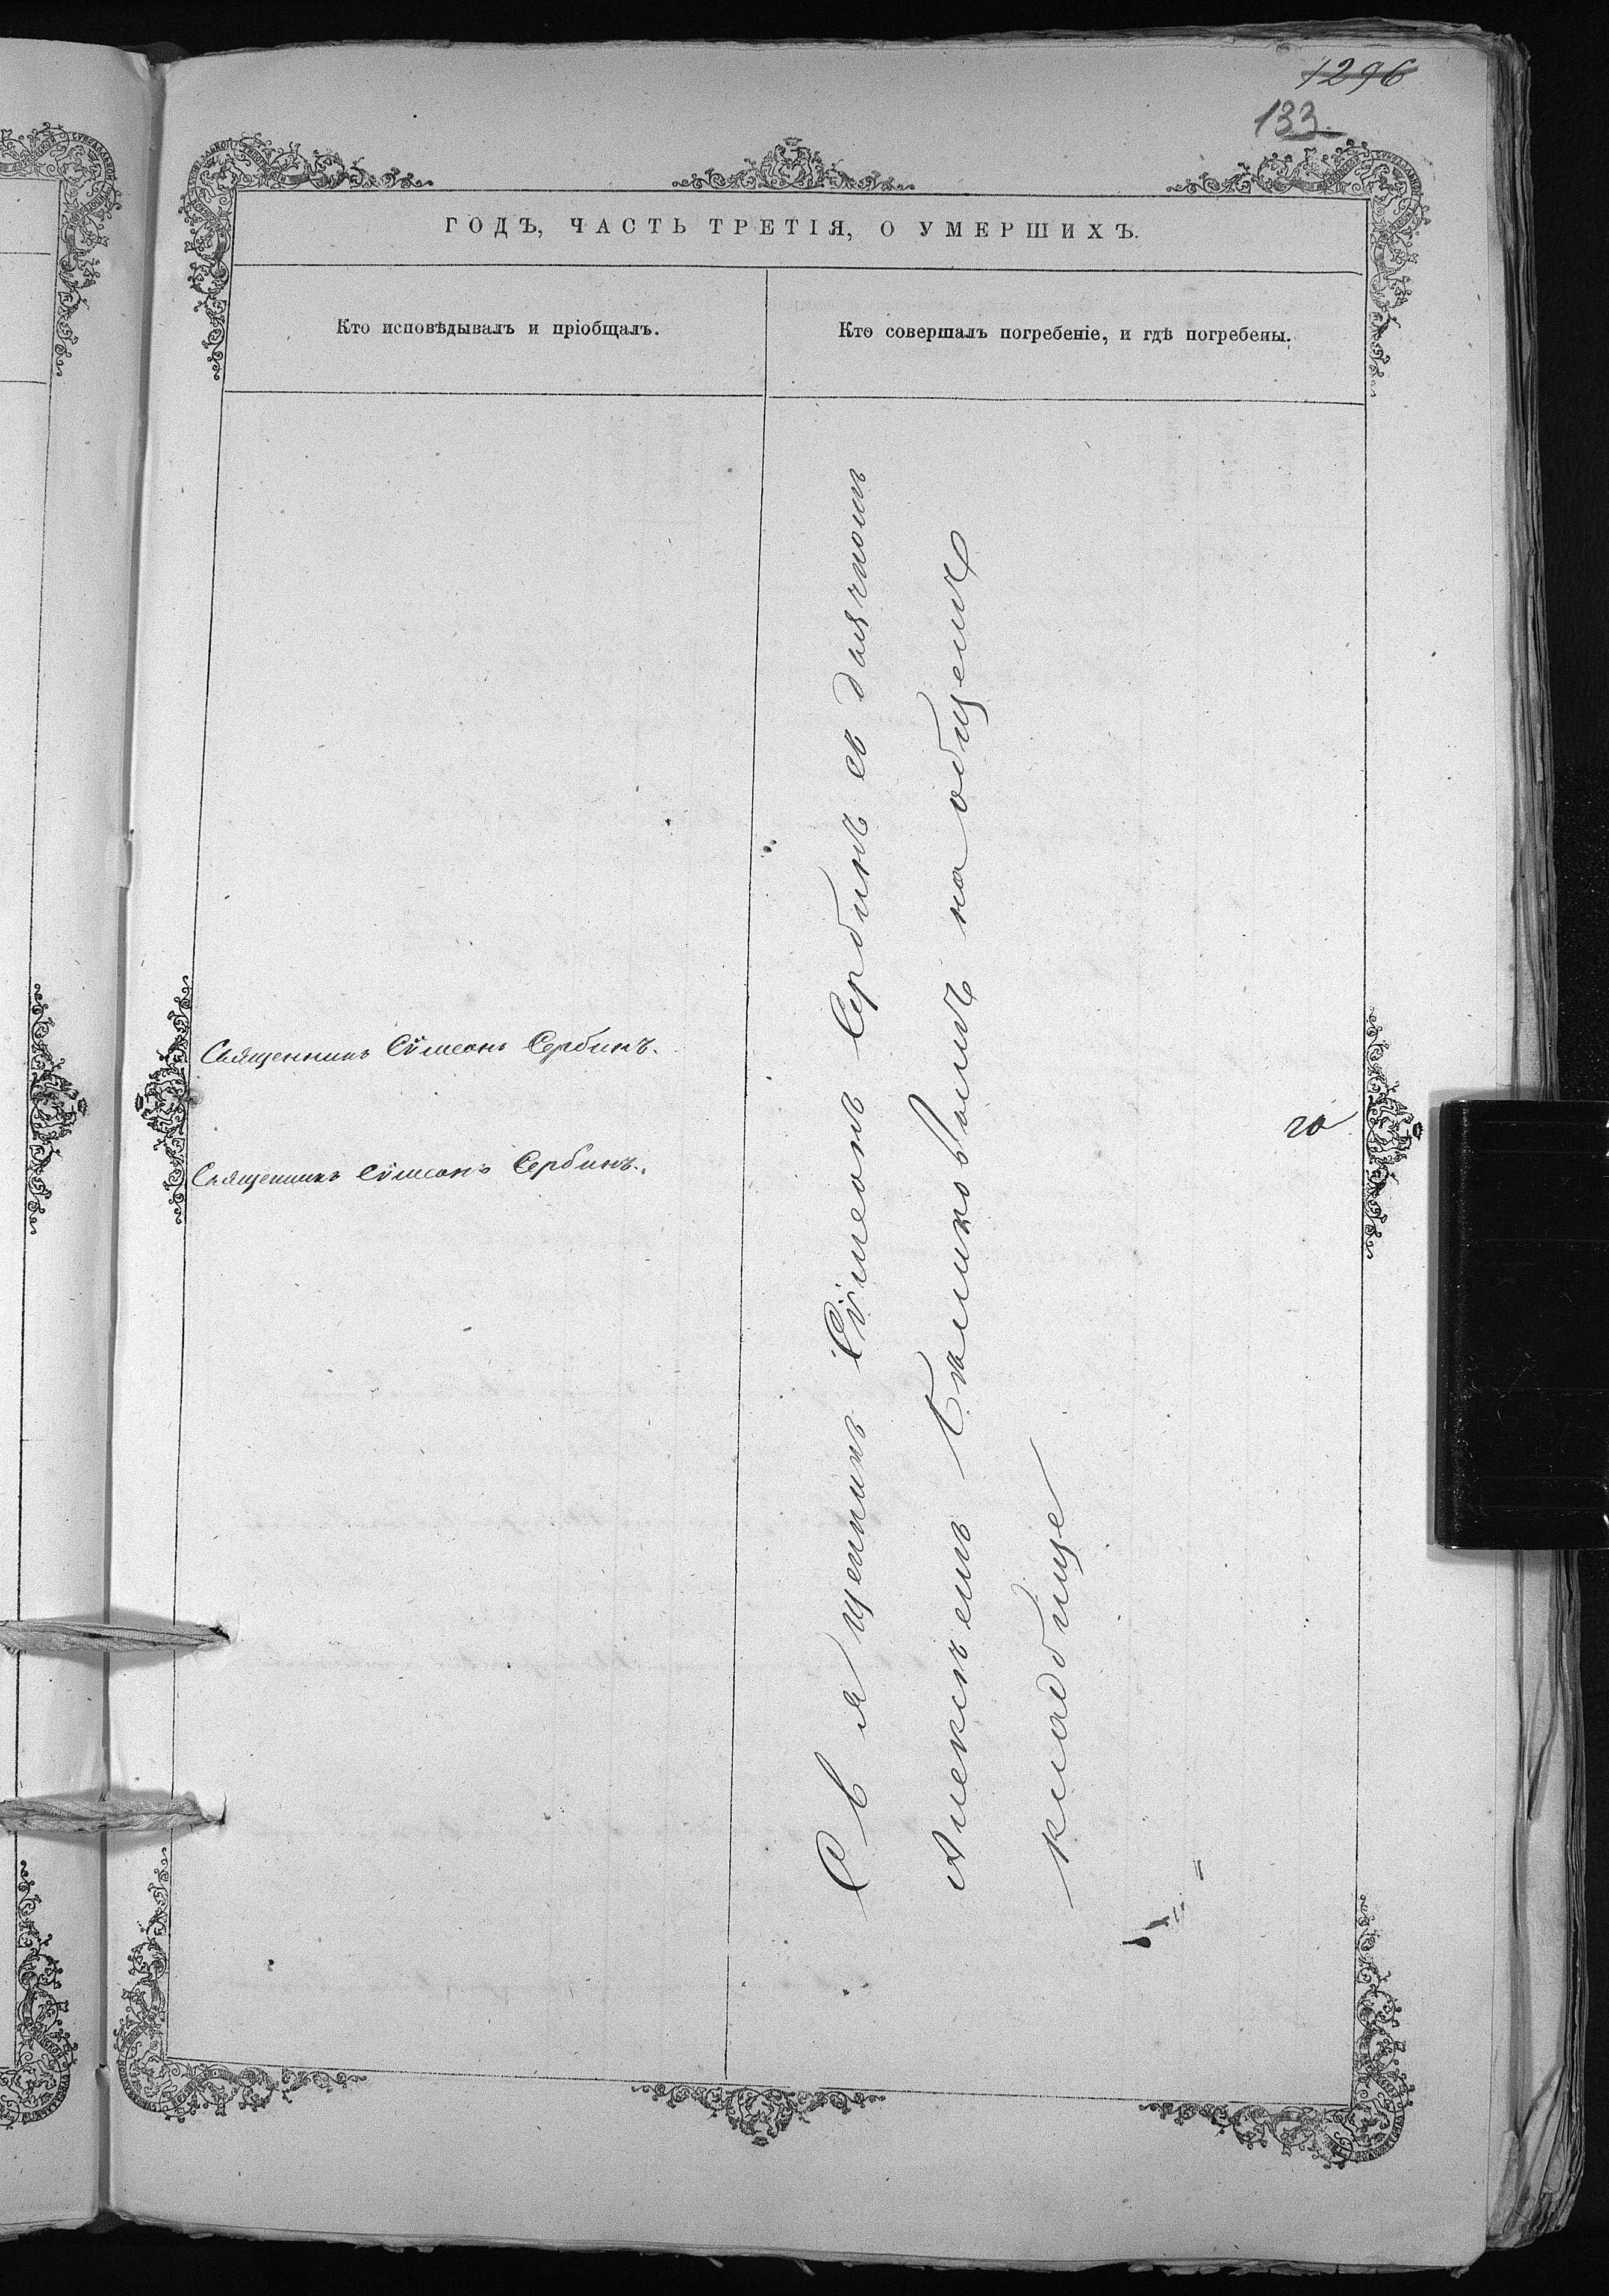 1296
133
ГОДЪ, ЧАСТЬ ТРЕТІЯ, О УМЕРШИХЪ.
Кто исповѣдывалъ и пріобщалъ.
Кто совершалъ погребеніе, и гдѣ погребены.
Священникъ Сѵмеонъ Сербинъ.
Священникъ Сѵмеонъ Сербинъ.
Священникъ Сѵмеонъ Сербинъ съ дьячкомъ
Алексѣемъ на общемъ
кладбище
го